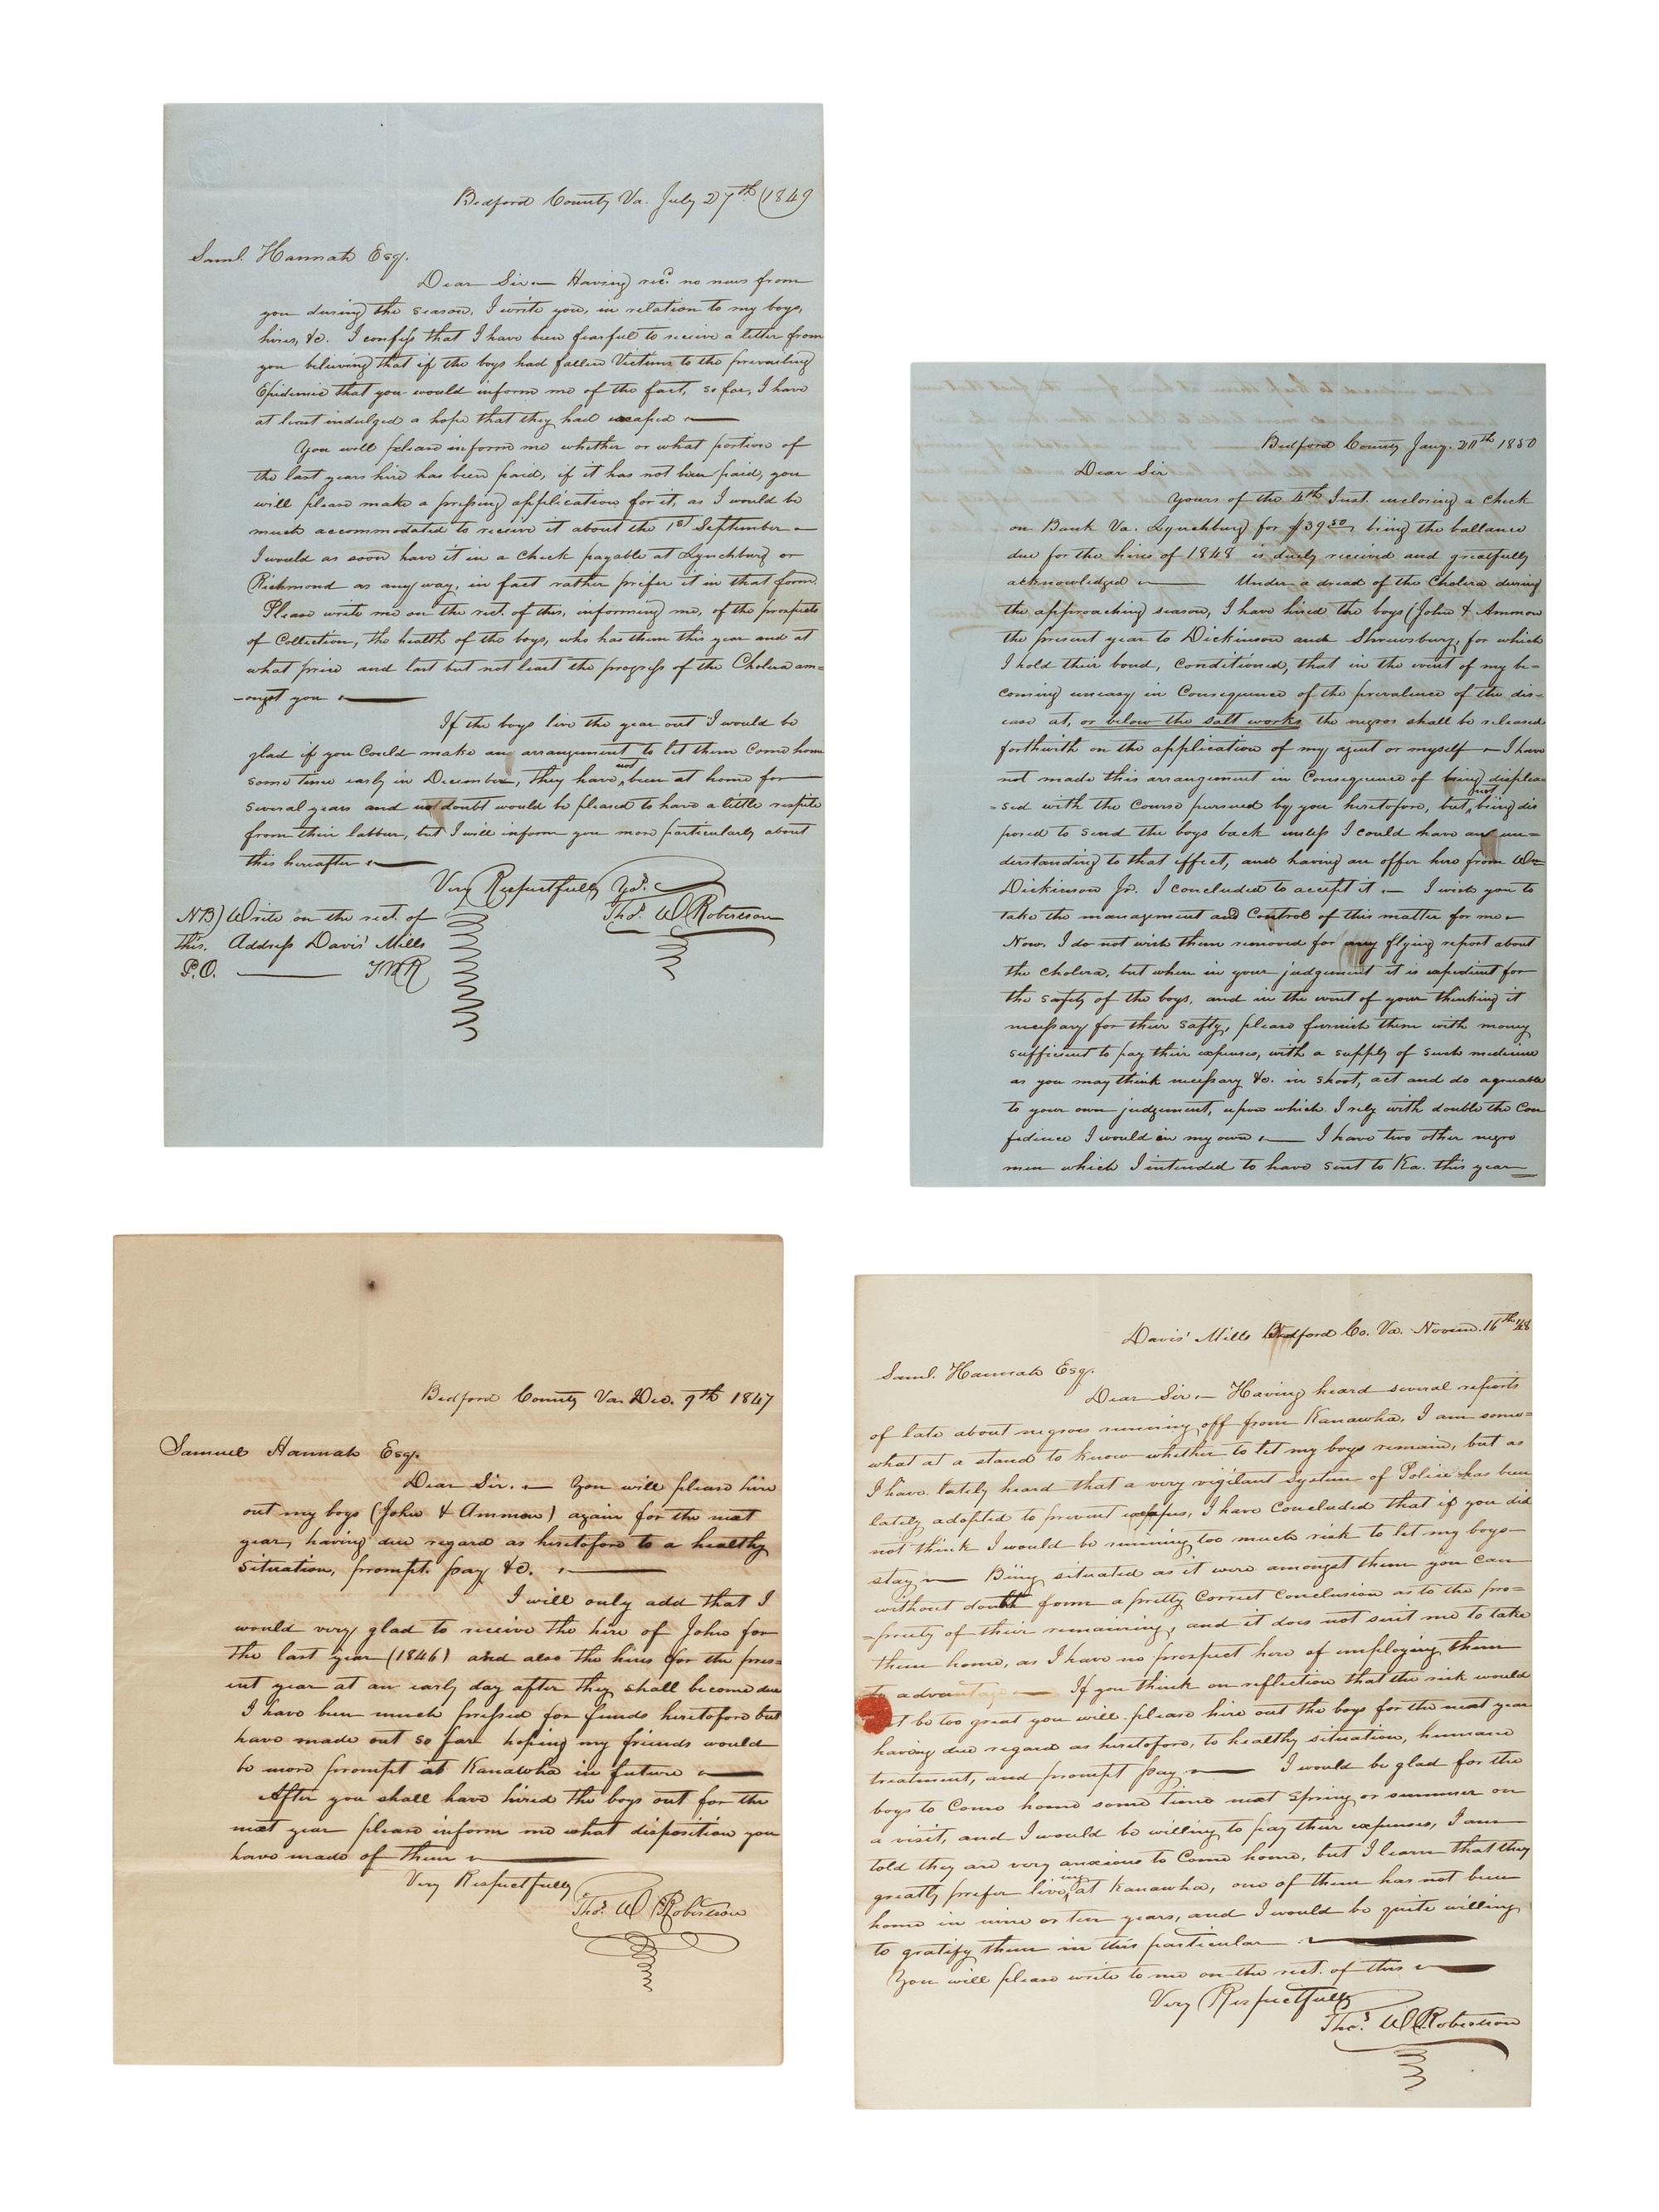 Bedford County Va. July 27th 1849
Saml. Hannah Esq.
Dear Sir Having recd. no news from
you during the season, I write you, in relation to my boys,
hires, &c. I confess that I have been fearful to receive a letter from
you believing that if the boys had fallen Victims to the prevailing
Epidemic that you would inform me of the fact, so far, I have
at least indulged a hope that they had escaped
You will please inform me whether or what portion of
the last years hire has been paid, if it has not been paid, you
will please make a pressing application for it, as I would be
much accommodated to receive it about the 1st September
I would as soon have it in a Check payable at Lynchburg or
Richmond as any way, in fact rather prefer it in that form.
Please write me on the rect. of this, informing me, of the prospects
of Collection, the health of the boys, who has them this year and at
what price and last but not least the progress of the Cholera am=
-ongst you
If the boys live the year out I would be
glad if you Could make an arrangement to let them Come home
some time early in December, they have not been at home for
several years and no doubt would be pleased to have a little respite
from their labour, but I will inform you more particularly about
this hereafter
Very Respectfully Yrs.
Thos. W Robertson
NB) Write on the rect. of
this. Address Davis' Mills
P.O. TWR
Bedford County Jany. 1850
Dear Sir
Yours of the 4th Inst. inclosing a Check
on Bank Va. Lynchburg for $39.50, being the ballance
due for the hires of 1848 is duely received and greatfully
acknowledged Under a dread of the Cholera during
the approaching season, I have hired the boys (John & Ammon
the present year to Dickinson and Shrewsbury, for which
I hold their bond, Conditioned, that in the event of my be=
coming uneasy in Consequence of the prevalence of the dis=
ease at, or below the salt works the negros shall be released
forthwith on the application of my agent or myself I have
not made this arrangement in Consequence of being displea=
=sed with the Course pursued by you heretofore, but not being dis
posed to send the boys back unless I could have an un=
derstanding to that effect, and having an offer here from Wm
Dickinson Jr. I concluded to accept it I wish you to
take the management and Control of this matter for me
Now. I do not wish them removed for any flying report about
the cholera, but when in your judgement it is expedient for
the safety of the boys, and in the event of your thinking it
necessary for their safty, please furnish them with money
sufficient to pay their expenses, with a supply of such medicine
as you may think necessary &c. in short, act and do agreeable
to your own judgement, upon which I rely with double the Con
fidence I would in my own I have two other negro
men which I intended to have sent to Ka. this year
Bedford County Va. Dec. 9th 1847
Samuel Hannah Esq.
Dear Sir. You will please hire
out my boys (John & Ammon) again for the next
year, having due regard as heretofore to a healthy
situation, prompt. pay &c.
I will only add that I
would very glad to receive the hire of John for
the last year (1846) and also the hires for the pres=
ent year at an early day after they shall become due
I have been much pressed for funds heretofore but
have made out so far hoping my friends would
be more prompt at Kanawha in future
After you shall have hired the boys out for the
next year please inform me what disposition you
have made of them
Very Respectfully
Thos. W Robertson
Davis' Mills Bedford Co. Va. Novem. 16th /48
Saml. Hannah Esq.
Dear Sir Having heard several reports
of late about negroes running off from Kanawha, I am some=
what at a stand to know whether to let my boys remain, but as
I have lately heard that a very vigilant system of Police has been
lately adopted to prevent I have Concluded that if you did
not think I would be running too much risk to let my boys
stay Being situated as it were amongst them you can
without doubt form a pretty Correct Conclusion as to the pro=
=priety of their remaining, and it does not suit me to take
them home, as I have no prospect here of employing them
to advantage If you think on reflection that the risk would
not be too great you will please hire out the boys for the next year
having due regard as heretofore, to healthy situation, humane
treatment, and prompt pay I would be glad for the
boys to Come home some time next Spring or summer on
a visit, and I would be willing to pay their expenses, I am
told they are very anxious to Come home, but I learn that they
greatly prefer living at Kanawha, one of them has not been
home in nine or ten years, and I would be quite willing
to gratify them in this particular
You will please write to me on the rect. of this
Very Respectfully
Thos. W Robertson